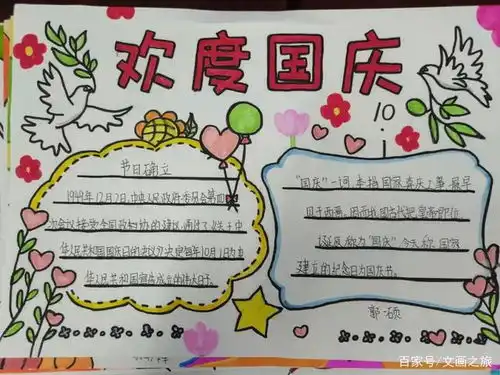 欢度国庆
10
1
节日确立
1949年12月2日,中央人民政府委员会第四
次会议接受全国政协的建议,通过了《关于中
华人民共和国国庆日的决议》,决定每年10月1日为中
华人民共和国宣告成立的伟大日子。
"国庆"一词,本指国家喜庆之事,最早
见于西晋。因而我国古代把皇帝即位、
诞辰称为"国庆"。今天称国家
建立的纪念日为国庆节。
郭硕
百家号/文画之旅